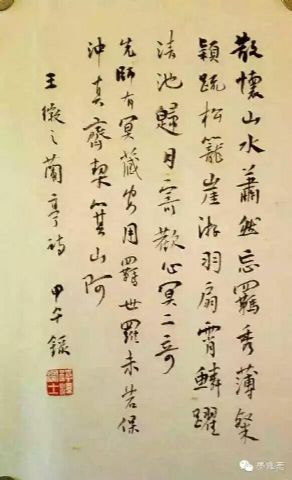 散懷山水蕭然忘羈秀薄粲
穎疏松籠崖游羽扇霄鱗躍
清池歸目寄歡心冥二奇
先師有冥藏安用羈世羅未若保
沖真齊契箕山阿
王徽之蘭亭詩 甲午錄